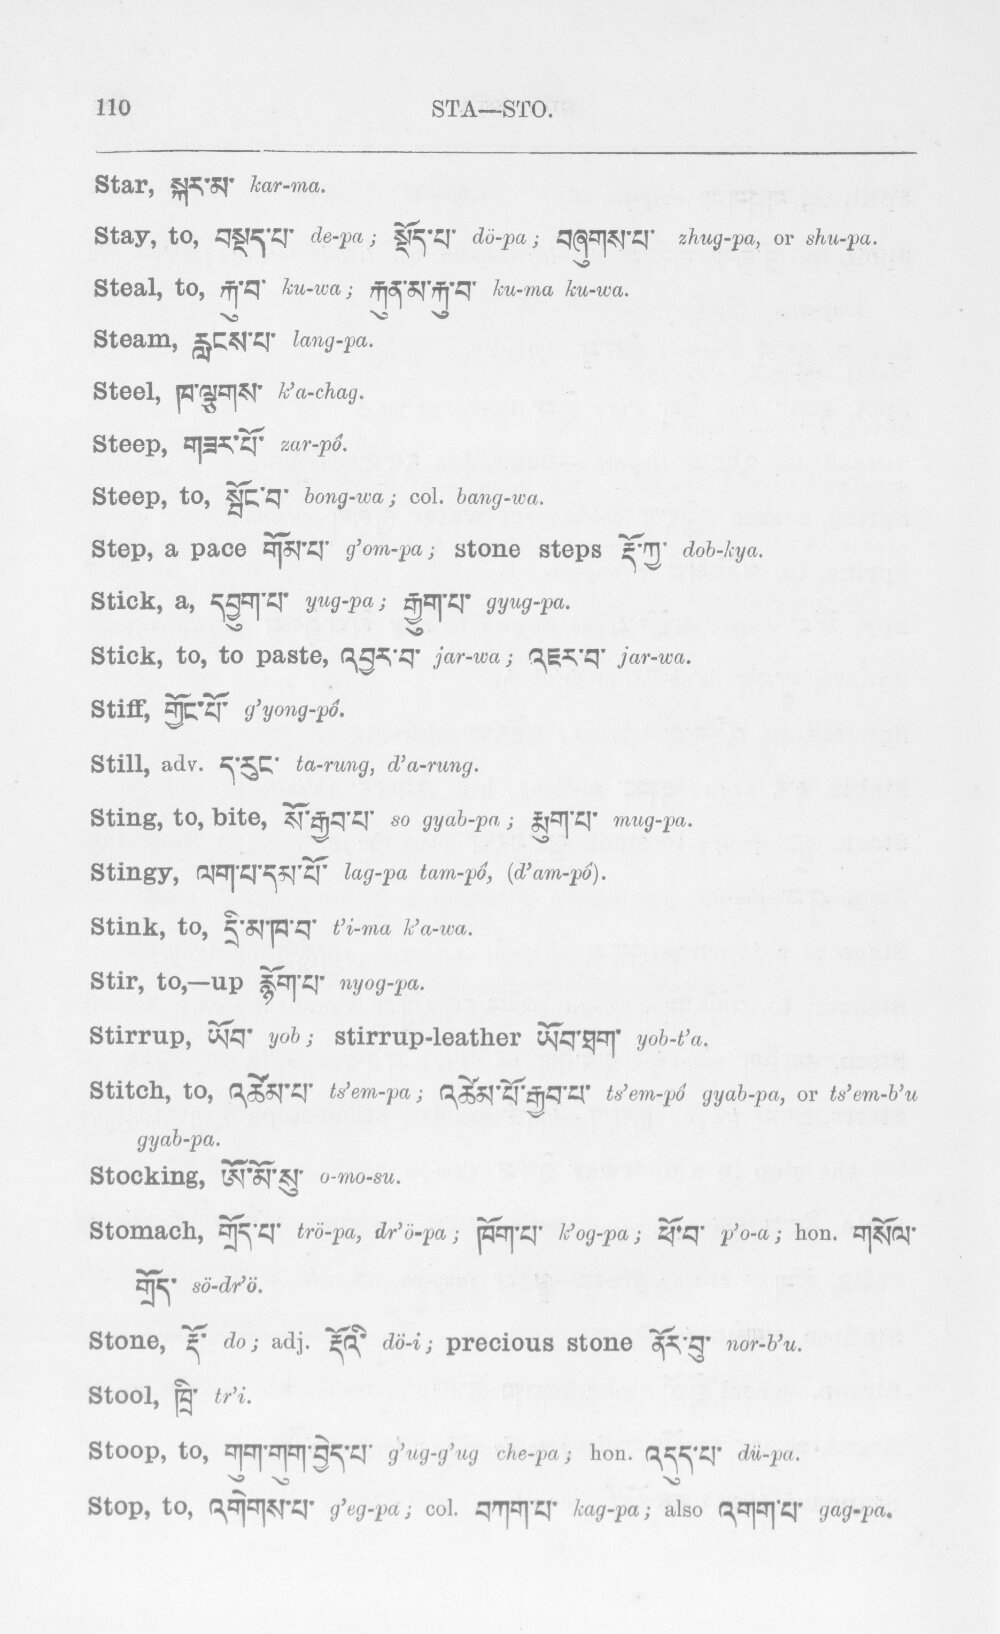 110 STA—STO.
Star, སྐར་མ་ kar-ma.
Stay, to, བསྡད་པ་ de-pa; སྡོད་པ་ dö-pa; བཞུགས་པ་ zhug-pa, or shu-pa.
Steal, to, རྐུ་བ་ ku-wa; རྐུན་མ་རྐུ་བ་ ku-ma ku-wa.
Steam, རླངས་པ་ lang-pa.
Steel, ཁ་ལྕགས་ k’a-chag.
Steep, གཟར་པོ་ zar-pó.
Steep, to, སྦོང་བ་ bong-wa; col. bang-wa.
Step, a pace གོམ་པ་ g’om-pa; stone steps རྡོ་ཀྱ་ dob-kya.
Stick, a, དབྱུག་པ་ yug-pa; རྒྱུག་པ་ gyug-pa.
Stick, to, to paste, འབྱར་བ་ jar-wa; འཇར་བ་ jar-wa.
Stiff, གྱོང་པོ་ g’yong-pó.
Still, adv. ད་རུང་ ta-rung, d’a-rung.
Sting, to, bite, སོ་རྒྱབ་པ་ so gyab-pa; རྨུག་པ་ mug-pa.
Stingy, ལག་པ་དམ་པོ་ lag-pa tam-pó, (d’am-pó).
Stink, to, དྲི་མ་ཁ་བ་ t’i-ma k’a-wa.
Stir, to,—up རྙོག་པ་ nyog-pa.
Stirrup, ཡོབ་ yob; stirrup-leather ཡོབ་ཐག་ yob-t’a.
Stitch, to, འཚེམ་པ་ ts’em-pa; འཚེམ་པོ་རྒྱབ་པ་ ts’em-pó gyab-pa, or ts’em-b’u
gyab-pa.
Stocking, ཨོ་མོ་སུ་ o-mo-su.
Stomach, གྲོད་པ་ trö-pa, dr’ö-pa; ཁོག་པ་ k’og-pa; ཕོ་བ་ p’o-a; hon. གསོལ་
གྲོད་ sö-dr’ö.
Stone, རྡོ་ do; adj. རྡོའི་ dö-i; precious stone ནོར་བུ་ nor-b’u.
Stool, ཁྲི་ tr’i.
Stoop, to, གུག་གུག་བྱེད་པ་ g’ug-g’ug che-pa; hon. འདུད་པ་ dü-pa.
Stop, to, འགེགས་པ་ g’eg-pa; col. བཀག་པ་ kag-pa; also འགག་པ་ gag-pa.